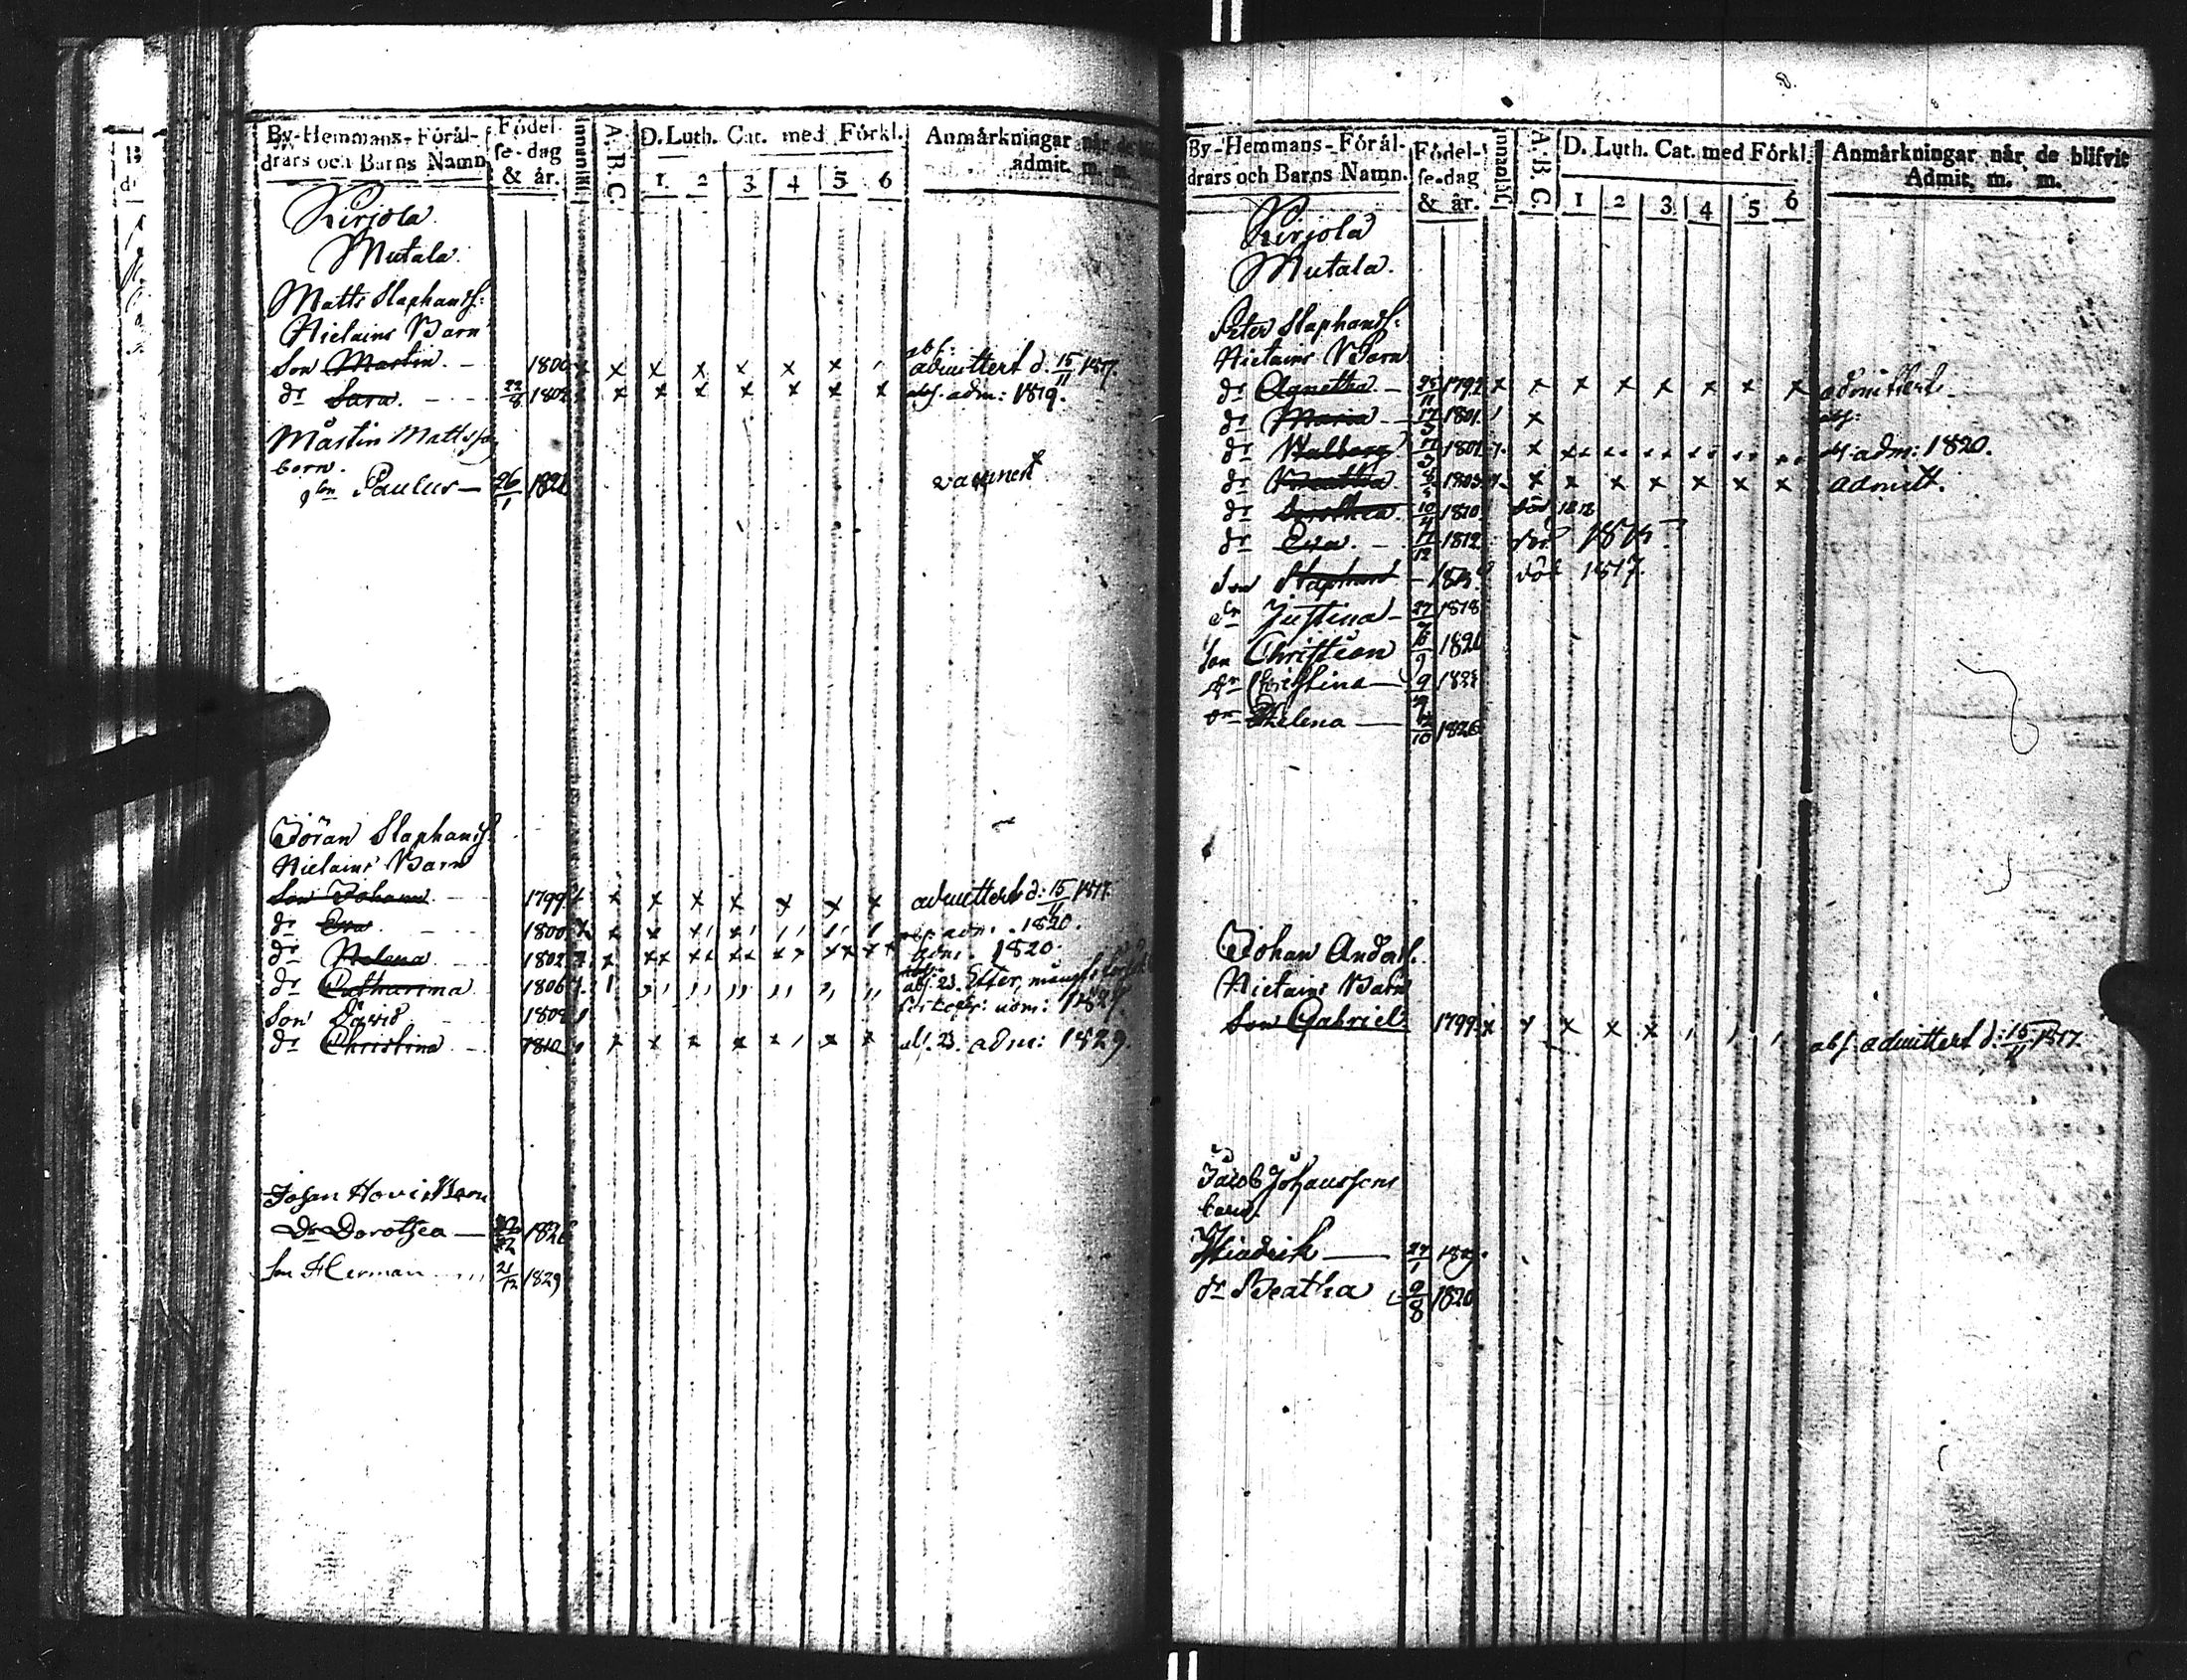 By-Hemmans-Föräl-
drars och Barns Namn
Födel-
se-dag
& år.
Innanläs.
A.B.C.
D. Luth. Cat. med Förkl.
1 2 3 4 5 6
Anmärkningar når de
admit. m. m.
Kirjola
Mutala
Matts Staphands:
Hietains Barn
Son Martin. 1800 x x x x x x x abs. admittert d. 15/11 1817.
dr Sara. 22/8 1802 x x x x x x x abs. adm: 1819.
Mårtin Mattss
barn.
son Paulus 26/1 1822 vaccinert
Jöran Staphands:
Hietains Barn
Son Johann 1799 x x x x x x admitterd d: 15/11 1817
dr Eva 1800 x x x adm. 1820.
dr Helena 1802 x x xx xx xx xx xx adm. 1820.
dr Catharina 1806 abs. 23. Efter
1827.
Son David 1808
dr Christina 1810 x x x x x x x abs. 23. adm: 1829.
Johan Hovis Barn
Dr Dorothea 1826
Son Herman 21/12 1829
By-Hemmans-Föräl-
drars och Barns Namn.
Födel-
se-dag
& år.
Innanläs.
A.B.C
D. Luth. Cat. med Förkl.
1 2 3 4 5 6
Anmärkningar når de blifvit
Admit. m. m.
Kirjola
Mutala.
Peter Staphands:
Hietains Barn
dr Agnetha 1797 x x x x x x x x admitterd
dr Maria 17/3 1801 x abs:
dr Walborg 17/3 1801 x adm: 1820.
dr Beatha 1805 x x x x x x x admitt.
dr Dorothea 10/4 1810 död 1818
dr Eva. 17/12 1812 död
Son Staphan död 1817.
dr Justina 27 1818
Son Christian 6/9 1820
dr Christina 9 182
dr Helena 10 1826
Johan Anders.
Hietains Barn
Son Gabriel 1799 x x x x x abs. admitterd d: 15/11 1817.
Jacob Johanssons
barn.
Hindrik 27/1 18
dr Beatha 9/8 1820